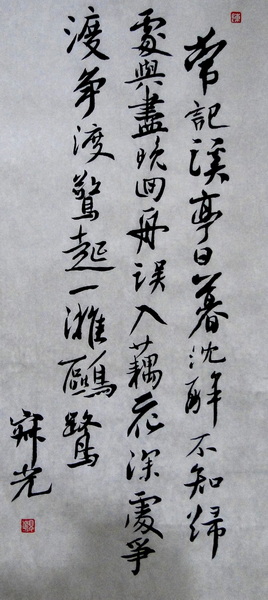 常記溪亭日暮沈醉不知歸
處與盡晚回舟誤入藕花深處爭
渡爭渡驚起一灘鷗鷺
寐光